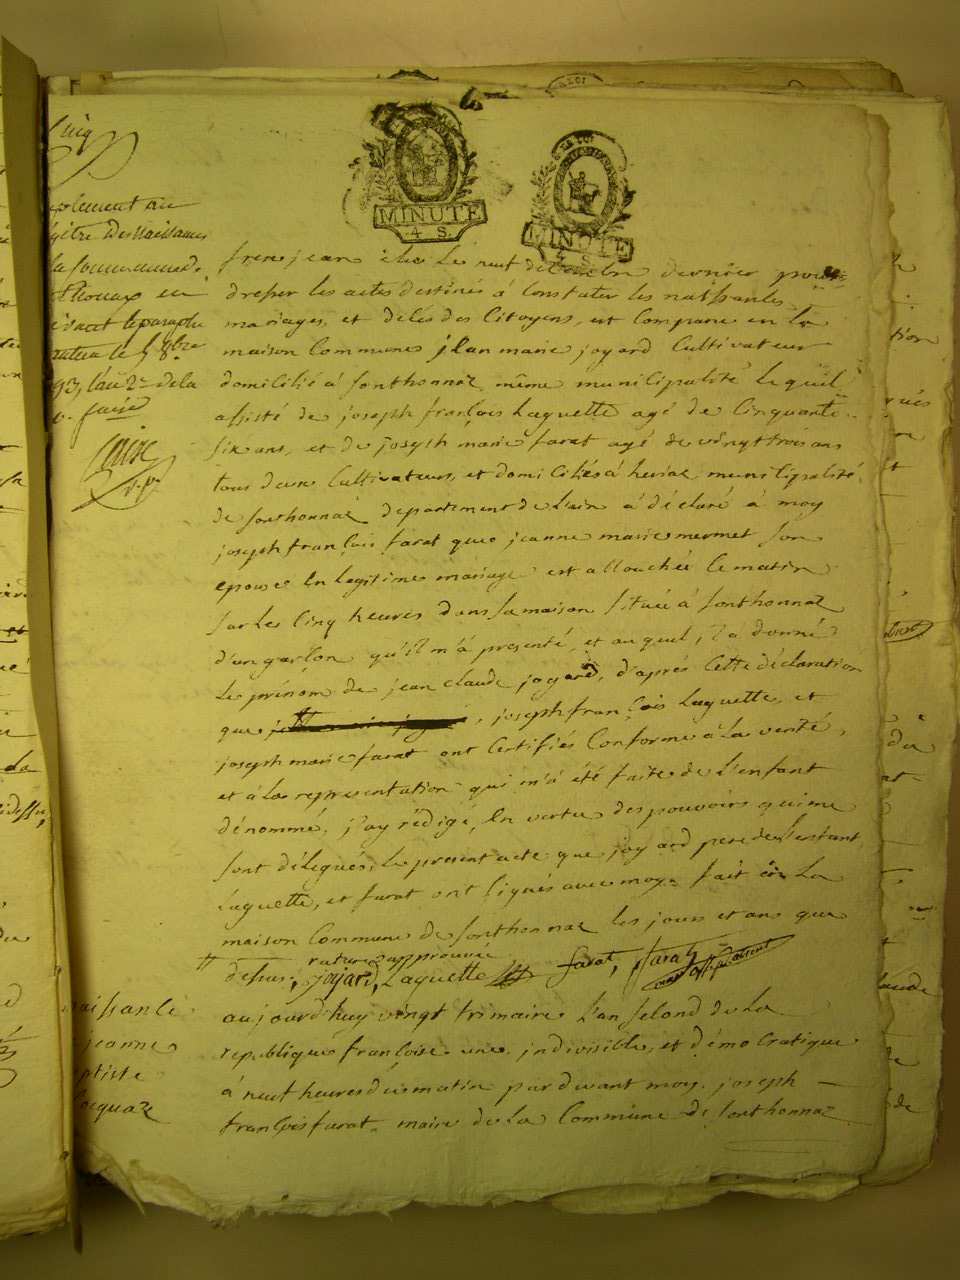 Cinq
MINUTE
4 S.
MINUTE
4 S.
plement au
gitre des naissances
la Commune de
Sthonax en
vant le paraphe
93, l'an 2e de la
faisé
frere jean élu le neuf decembre dernier pour
dresser les actes destinés à Constater les naissances
mariages, et décés des Citoyens, est Comparu en la
maison Commune jean marie joyard Cultivateur
domicilié à sonthonnax même municipalité lequel
assisté de joseph françois Laguette agé de Cinquante
six ans, et de joseph marie farat agé de vingt trois ans
tous deux Cultivateurs, et domiciliés à heriaz municipalité
de sonthonnax departement de L'ain à déclaré à moy
joseph françois farat que jeanne marie mermet son
epouse en legitime mariage est allouchée le matin
sur les Cinq heures dans sa maison située à sonthonnax
d'un garçon qu'il m'à presenté, et auquel, il à donné
le prénom de jean claude joyard, d'après Cette déclaration
que , joseph françois Laguette, et
joseph marie farat ont Certifiés Conforme à la verité,
et à la representation qui m'à été faite de L'enfant
dénommé, j'ay rédigé, en vertu des pouvoirs qui me
sont délegués, le present acte que joyard pere de l'enfant
Laguette, et farat ont signés avec moy. fait en La
maison Commune de sonthonnax les jours et an que
rature approuvée
dessus, joyard, Laguette farat, farat
naissance
jeanne
ptiste
jacquaz
aujourd'huy vingt frimaire L'an second de la
republique françoise une, indivisible, et démocratique
à neuf heures du matin par devant moy joseph
françois farat maire de la Commune de sonthonnaz